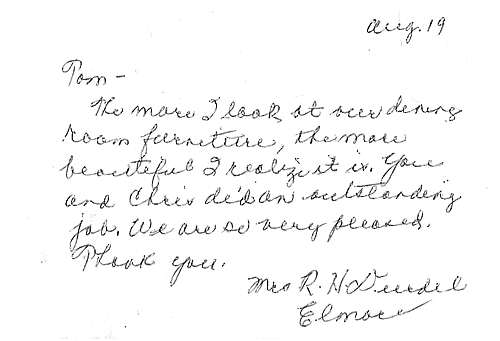 Aug. 19
Tom -
The more I look at our dining
room furniture, the more
beautiful I realize it is. You
and Chris did an outstanding
job. We are so very pleased.
Thank you.
Mrs R. H.
Elmore